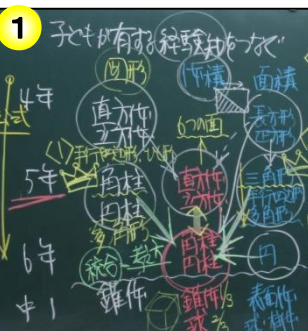 1
子どもが有する経験知をつなぐ
図形
体積
面積
4年
直方体
立方体
6つの面
長方形
正方形
5年
角柱
円柱
直方体
立方体
三角形
平行四辺形
多角形
6年
統合
角柱
円柱
円
中1
錐体
錐体1/3
球2/3
表面積
球・柱体